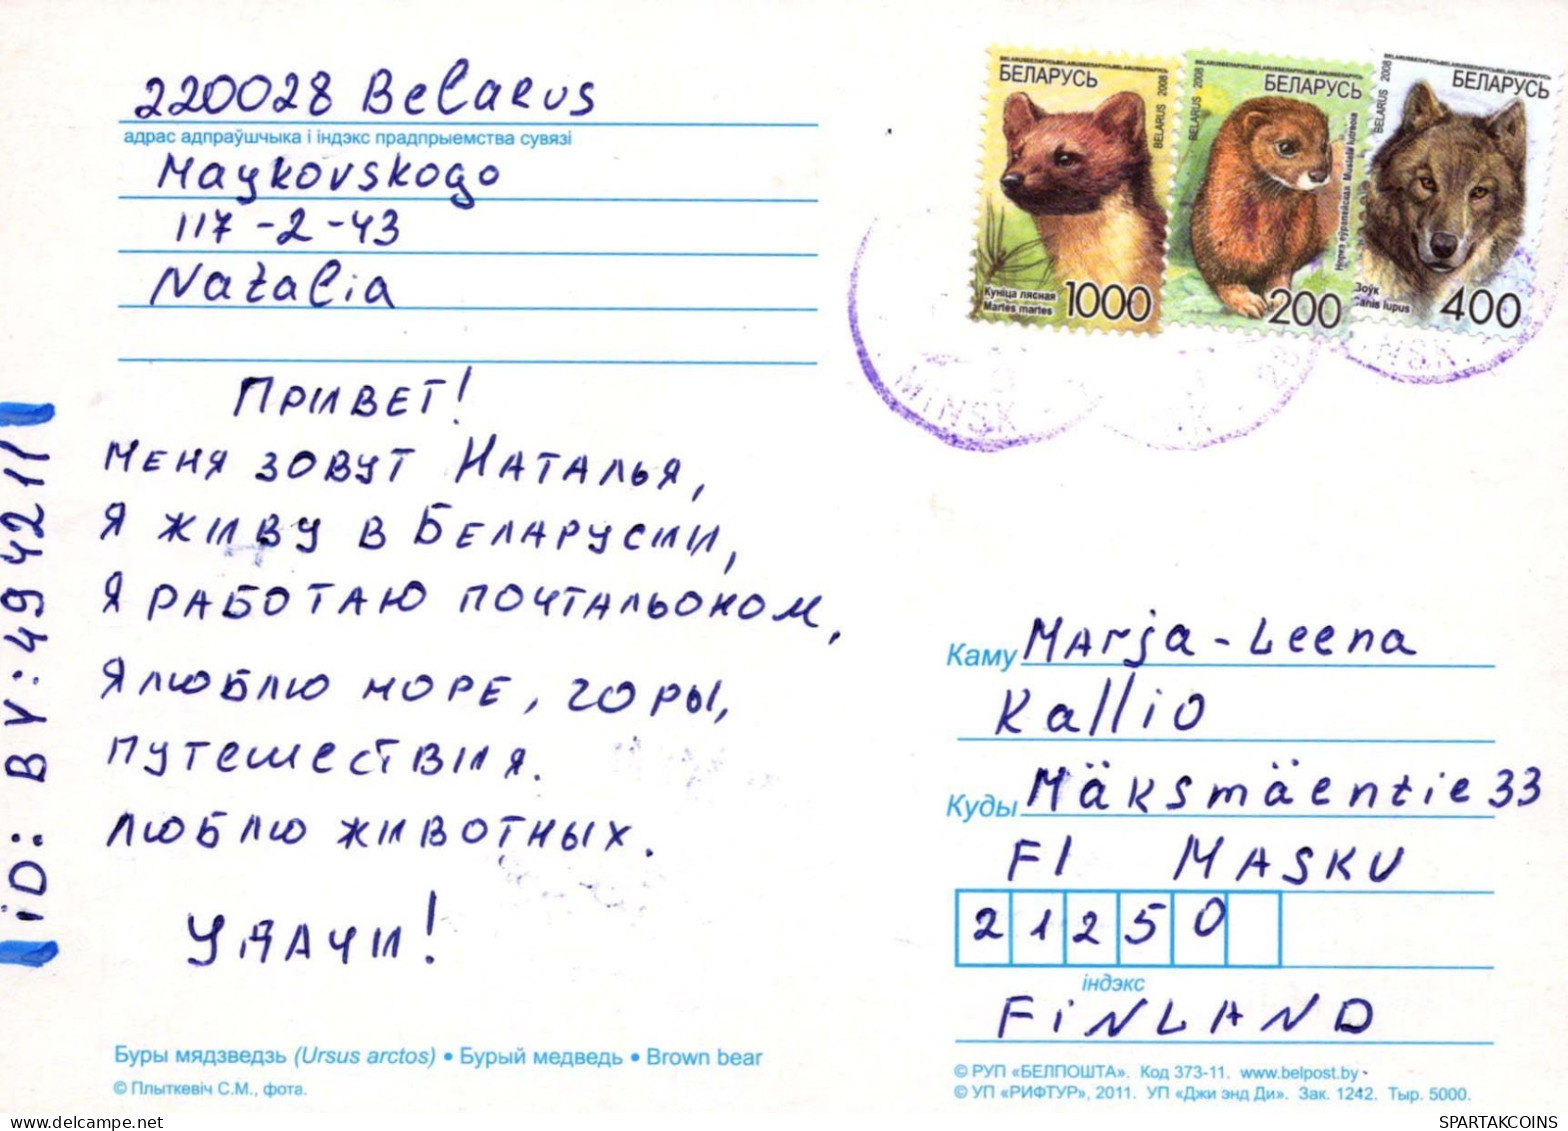 220028 Belarus
адрас адпраўшчыка і індэкс прадпрыемства сувязі
Maykovskogo
117-2-43
Natalia
БЕЛАРУСЬ
BELARUS 2008
Куніца лясная
Martes martes
1000
БЕЛАРУСЬ
BELARUS 2008
Норка еўрапейская Mustela lutreola
200
БЕЛАРУСЬ
BELARUS 2008
Воўк
Canis lupus
400
MINSK
Привет!
Меня зовут Наталья,
Я живу в Беларусии,
Я работаю почтальоном,
Я люблю море, горы,
путешествия.
люблю животных.
Удачи!
iD: BY:4994211
Каму Marja-Leena
Kallio
Куды Mäksmäentie 33
FI MASKU
21250
індэкс
FiNLAND
Буры мядзведзь (Ursus arctos) • Бурый медведь • Brown bear
© Плыткевіч С.М., фота.
© РУП «БЕЛПОШТА». Код 373-11. www.belpost.by
© УП «РИФТУР», 2011. УП «Джи энд Ди». Зак. 1242. Тыр. 5000.
SPARTAKCOINS